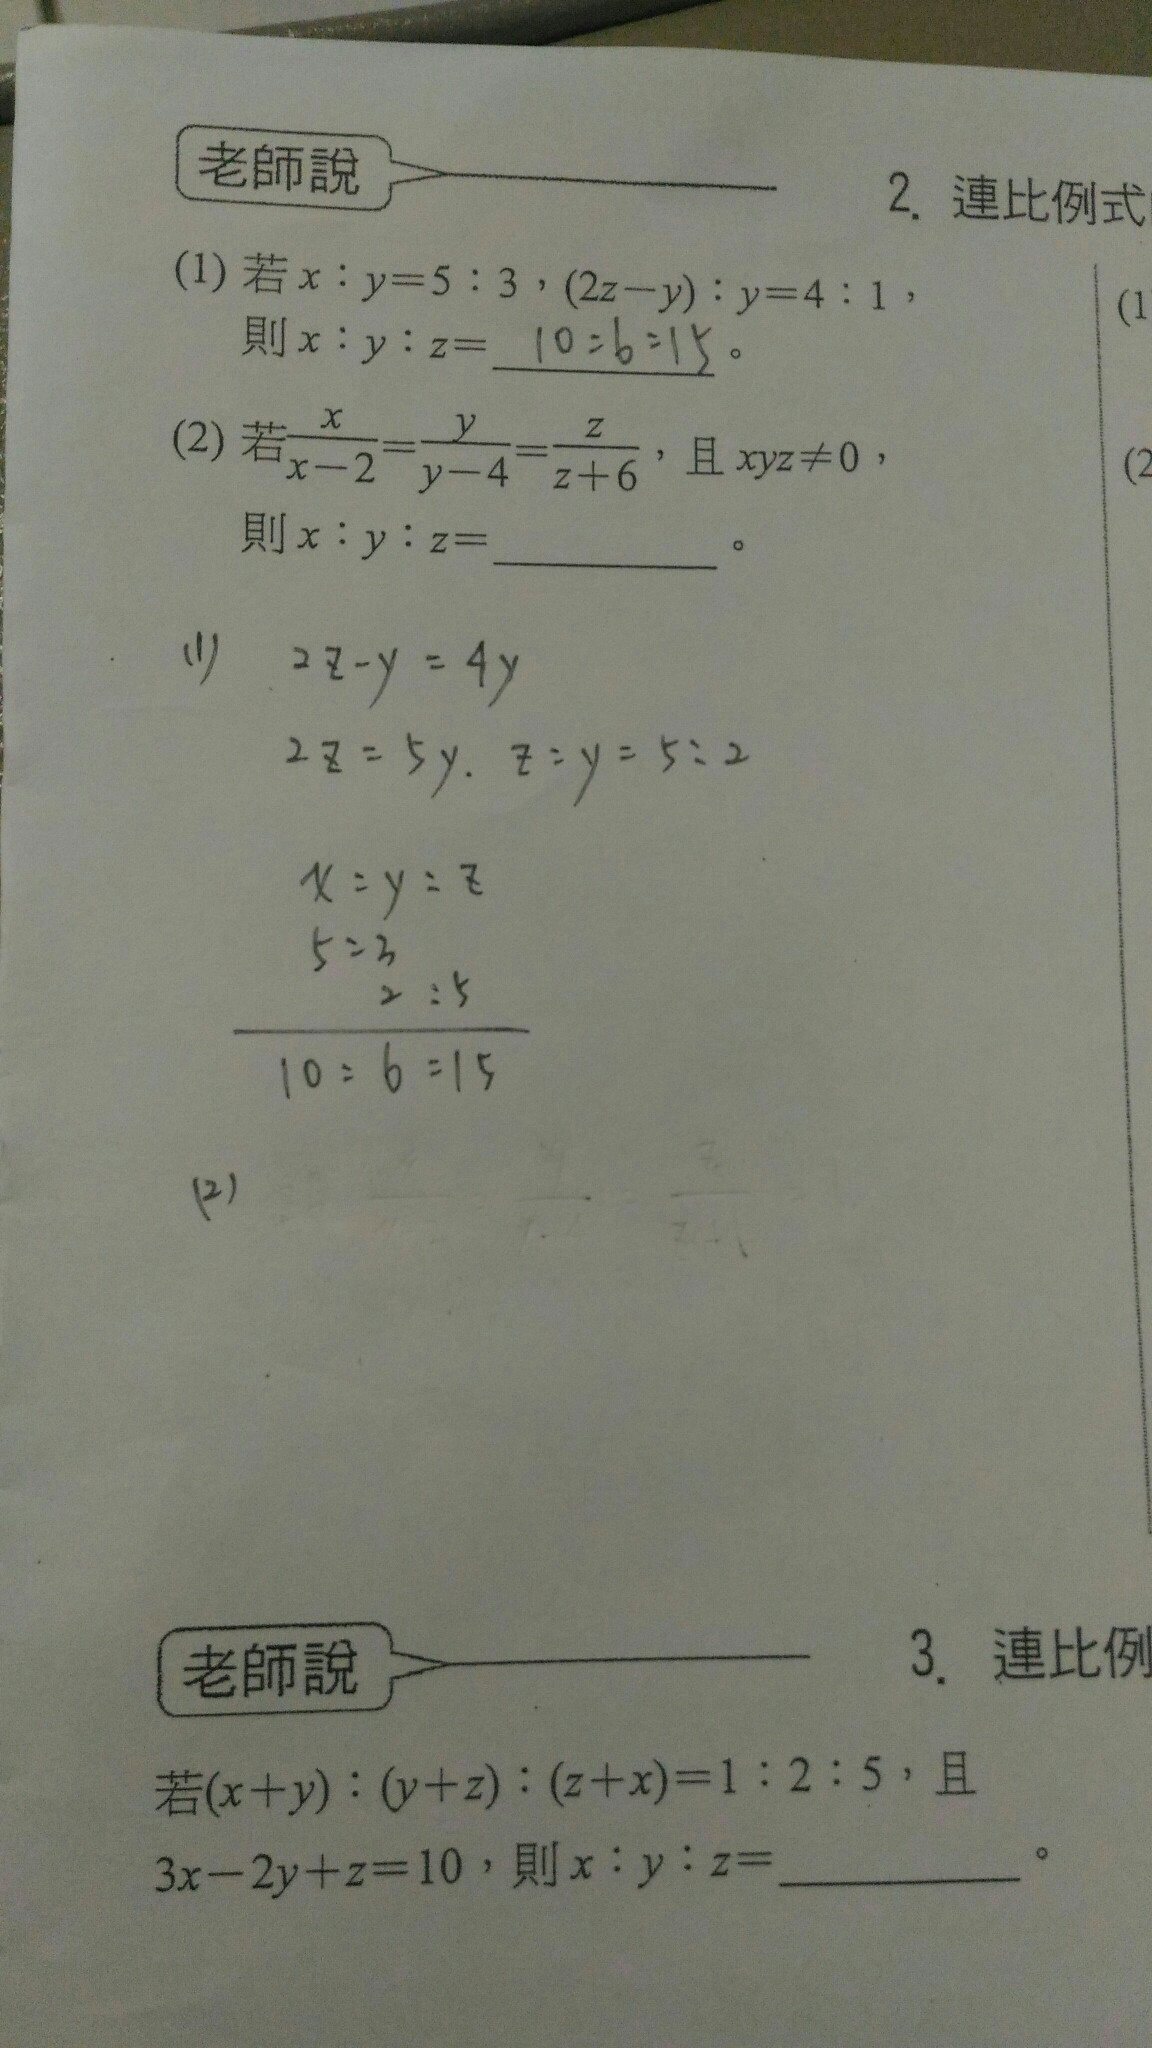 老師說
2. 連比例式
(1) 若 x：y=5：3，(2z−y)：y=4：1，
則 x：y：z= 10:6:15。
(2) 若 x/(x−2)=y/(y−4)=z/(z+6)，且 xyz≠0，
則 x：y：z=________。
(1) 2z-y = 4y
2z = 5y. z:y = 5:2
x:y:z
5:3
2:5
10:6:15
(2)
老師說
3. 連比例
若(x+y)：(y+z)：(z+x)=1：2：5，且
3x−2y+z=10，則 x：y：z=________。
(1
(2